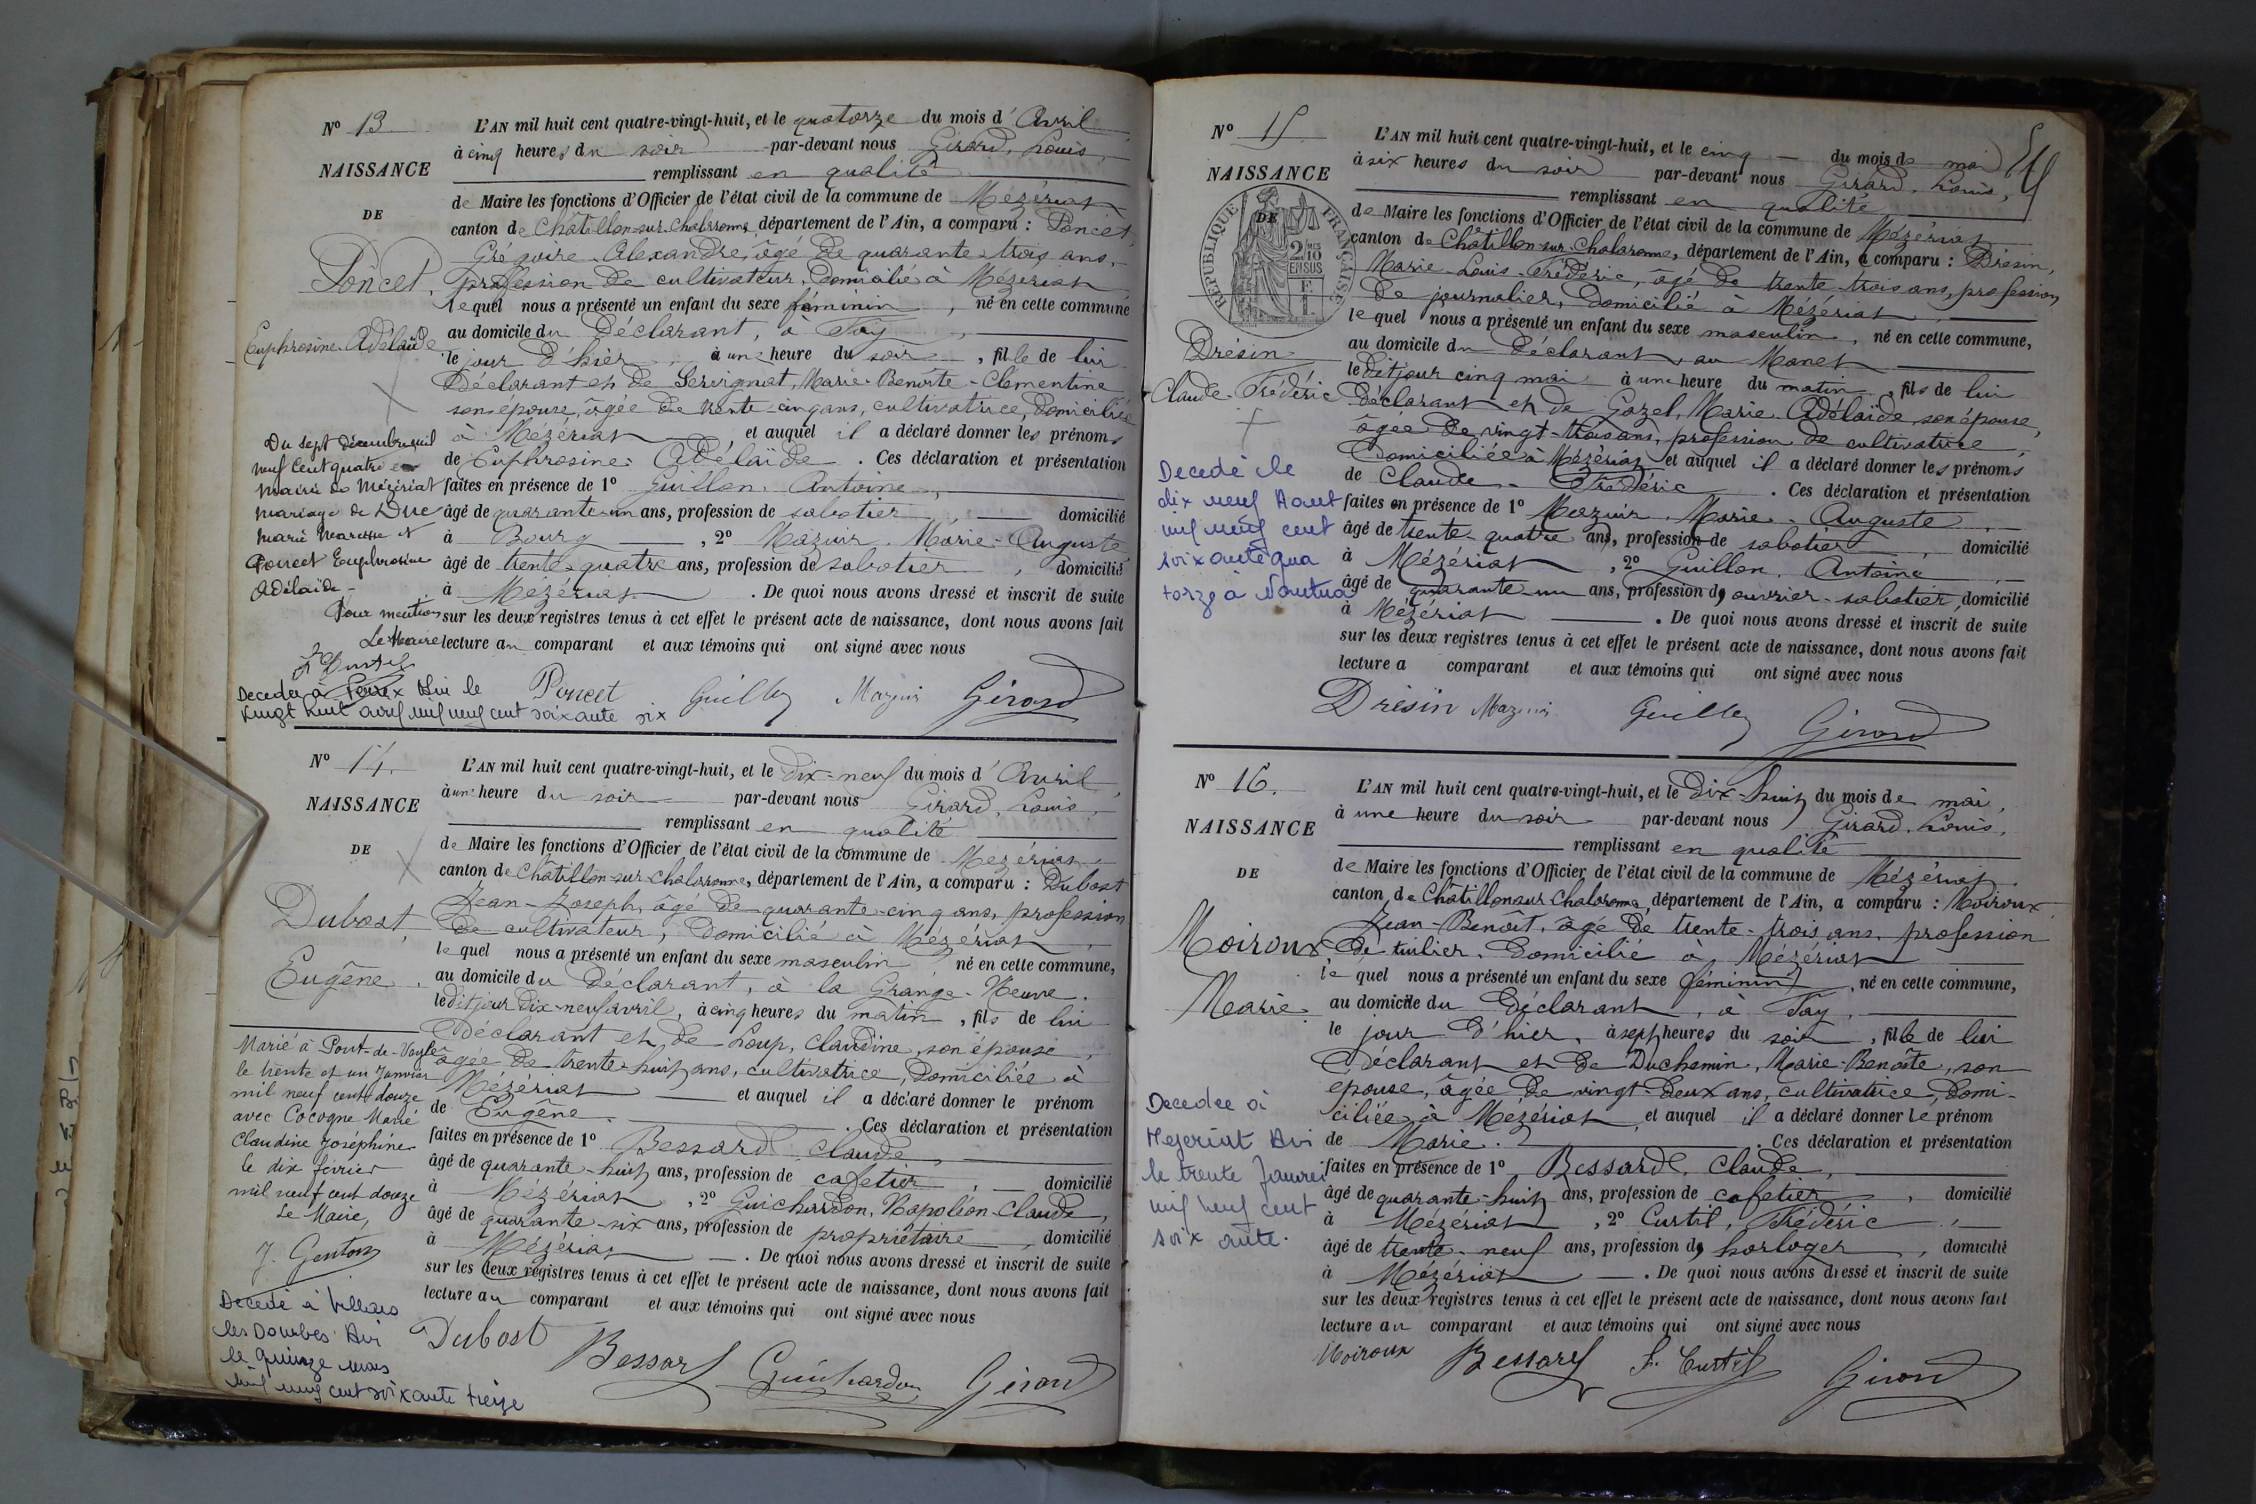 N° 13
NAISSANCE
DE
Poncet,
Euphrosine-Adélaïde
L'AN mil huit cent quatre-vingt-huit, et le quatorze du mois d'Avril
à cinq heures du soir par-devant nous Girard, Louis,
remplissant en qualité
de Maire les fonctions d'Officier de l'état civil de la commune de Mézériat
canton de Châtillon-sur-Chalaronne, département de l'Ain, a comparu : Poncet,
Grégoire-Alexandre, âgé de quarante-trois ans,
profession de cultivateur, domicilié à Mézériat
lequel nous a présenté un enfant du sexe féminin, né en cette commune
au domicile du déclarant, à Fay,
le jour d'hier, à une heure du soir, fille de lui
déclarant et de Servignat, Marie-Benoîte-Clémentine
son épouse, âgée de trente-cinq ans, cultivatrice, domiciliée
à Mézériat et auquel il a déclaré donner les prénoms
de Euphrosine Adélaïde. Ces déclaration et présentation
faites en présence de 1° Guillon Antoine,
âgé de quarante-un ans, profession de sabotier, domicilié
à Bourg, 2° Mazuir, Marie-Auguste
âgé de trente-quatre ans, profession de sabotier, domicilié
à Mézériat. De quoi nous avons dressé et inscrit de suite
sur les deux registres tenus à cet effet le présent acte de naissance, dont nous avons fait
lecture au comparant et aux témoins qui ont signé avec nous
Poncet Guillon Mazuir Girard
Du sept décembre mil
neuf cent quatre en
mairie de Mézériat
mariage de Duc
Marie et
Poncet Euphrosine
Adélaïde.
Pour mention
Le Maire
Decedee à Ain le
vingt huit avril mil neuf cent soixante six
N° 14.
NAISSANCE
DE
Dubost,
Eugêne.
L'AN mil huit cent quatre-vingt-huit, et le dix-neuf du mois d'Avril,
à une heure du soir par-devant nous Girard, Louis,
remplissant en qualité
de Maire les fonctions d'Officier de l'état civil de la commune de Mézériat
canton de Châtillon-sur-Chalaronne, département de l'Ain, a comparu : Dubost
Jean-Joseph, âgé de quarante-cinq ans, profession
de cultivateur, domicilié à Mézériat,
lequel nous a présenté un enfant du sexe masculin né en cette commune,
au domicile du déclarant, à la Grange-Neuve.
ledit jour dix-neuf avril, à cinq heures du matin, fils de lui
déclarant et de Loup, Claudine, son épouse,
âgée de trente-huit ans, cultivatrice, domiciliée à
Mézériat et auquel il a déclaré donner le prénom
de Eugêne. Ces déclaration et présentation
faites en présence de 1° Bessard Claude,
âgé de quarante-huit ans, profession de cafetier, domicilié
à Mézériat, 2° Guichardon, Napoléon-Claude,
âgé de quarante-six ans, profession de propriétaire, domicilié
à Mézériat. De quoi nous avons dressé et inscrit de suite
sur les deux registres tenus à cet effet le présent acte de naissance, dont nous avons fait
lecture au comparant et aux témoins qui ont signé avec nous
Dubost Bessard Guichardon Girard
Marié à Pont-de-Veyle
le trente et un Janvier
mil neuf cent douze
avec Cocogne Marie
Claudine Joséphine
le dix février
mil neuf cent douze
Le Maire,
J. Genton
Decedé à Villars
les Dombes Ain
le quinze mars
mil neuf cent soixante treize
N° 15
NAISSANCE
DE
RÉPUBLIQUE FRANÇAISE
2/10
EN SUS
Drésin
Claude-Frédéric
L'AN mil huit cent quatre-vingt-huit, et le cinq du mois de mai
à six heures du soir par-devant nous Girard, Louis,
remplissant en qualité
de Maire les fonctions d'Officier de l'état civil de la commune de Mézériat
canton de Châtillon-sur-Chalaronne, département de l'Ain, a comparu : Drésin,
Marie-Louis-Frédéric, âgé de trente-trois ans, profession
de journalier, domicilié à Mézériat,
lequel nous a présenté un enfant du sexe masculin, né en cette commune,
au domicile du déclarant, au Manet
ledit jour cinq mai à une heure du matin, fils de lui
déclarant et de Gozel, Marie-Adélaïde, son épouse,
âgée de vingt-trois ans, profession de cultivatrice,
domiciliée à Mézériat et auquel il a déclaré donner les prénoms
de Claude-Frédéric. Ces déclaration et présentation
faites en présence de 1° Mazuir, Marie-Auguste,
âgé de trente-quatre ans, profession de sabotier, domicilié
à Mézériat, 2° Guillon, Antoine
âgé de quarante-un ans, profession d'ouvrier-sabotier, domicilié
à Mézériat. De quoi nous avons dressé et inscrit de suite
sur les deux registres tenus à cet effet le présent acte de naissance, dont nous avons fait
lecture a comparant et aux témoins qui ont signé avec nous
Drésin Mazuir Guillon Girard
Decedé le
dix neuf Aout
mil neuf cent
soixante qua
torze à Nantua
N° 16.
NAISSANCE
DE
Moiroux,
Marie.
L'AN mil huit cent quatre-vingt-huit, et le dix-huit du mois de mai,
à une heure du soir par-devant nous Girard, Louis,
remplissant en qualité
de Maire les fonctions d'Officier de l'état civil de la commune de Mézériat
canton de Châtillon sur Chalaronne, département de l'Ain, a comparu : Moiroux
Jean-Benoît, âgé de trente-trois ans, profession
de tuilier, domicilié à Mézériat
lequel nous a présenté un enfant du sexe féminin, né en cette commune,
au domicile du déclarant, à Fay,
le jour d'hier, à sept heures du soir, fille de lui
déclarant et de Duchemin, Marie-Benoîte, son
épouse, âgée de vingt-deux ans, cultivatrice, domi-
ciliée à Mézériat, et auquel il a déclaré donner le prénom
de Marie. Ces déclaration et présentation
faites en présence de 1° Bessard, Claude,
âgé de quarante-huit ans, profession de cafetier, domicilié
à Mézériat, 2° Curtil, Frédéric,
âgé de trente-neuf ans, profession d'horloger, domicilié
à Mézériat. De quoi nous avons dressé et inscrit de suite
sur les deux registres tenus à cet effet le présent acte de naissance, dont nous avons fait
lecture au comparant et aux témoins qui ont signé avec nous
Moiroux Bessard F. Curtil Girard
Decedee à
Mezeriat Ain
le trente Janvier
mil neuf cent
soixante.